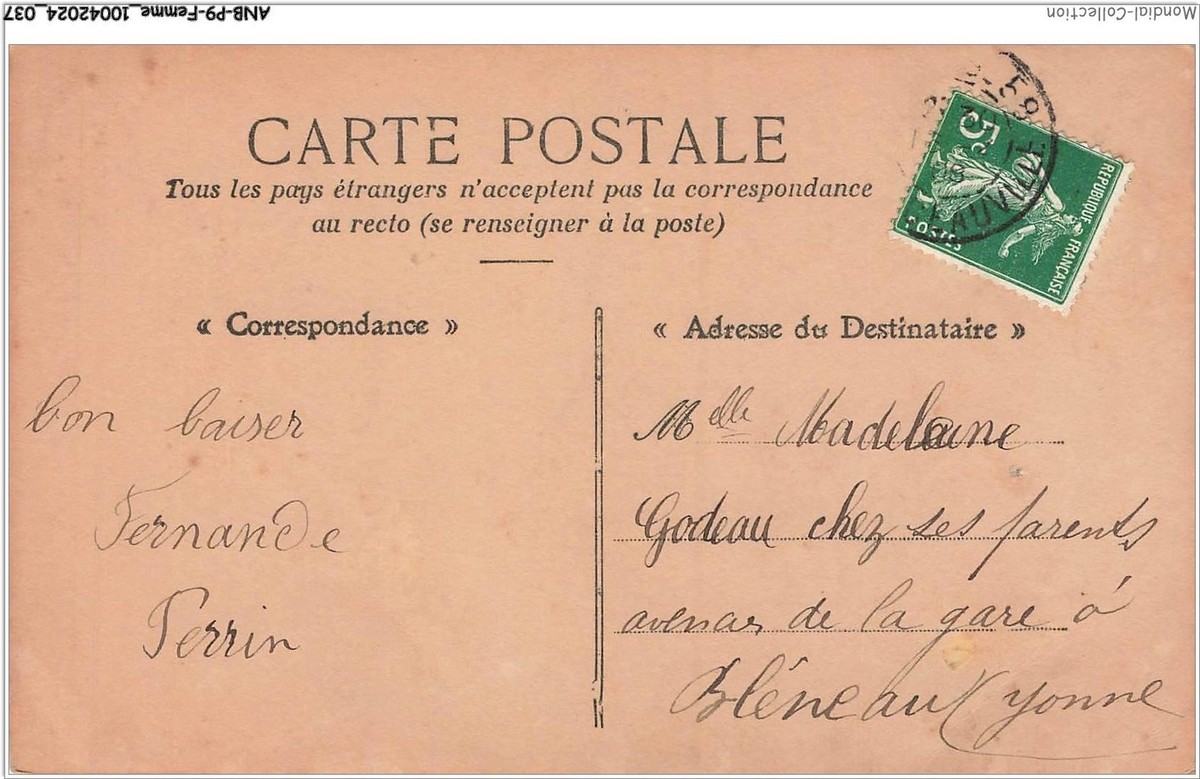 ANB-P9-Femme_10042024_037
Mondial-Collection
CARTE POSTALE
Tous les pays étrangers n'acceptent pas la correspondance
au recto (se renseigner à la poste)
5c
REPUBLIQUE FRANÇAISE
POSTES
« Correspondance »
bon baiser
Fernande
Perrin
« Adresse du Destinataire »
Melle Madeleine
Godeau chez ses parents
de la gare à
Bléneau Yonne